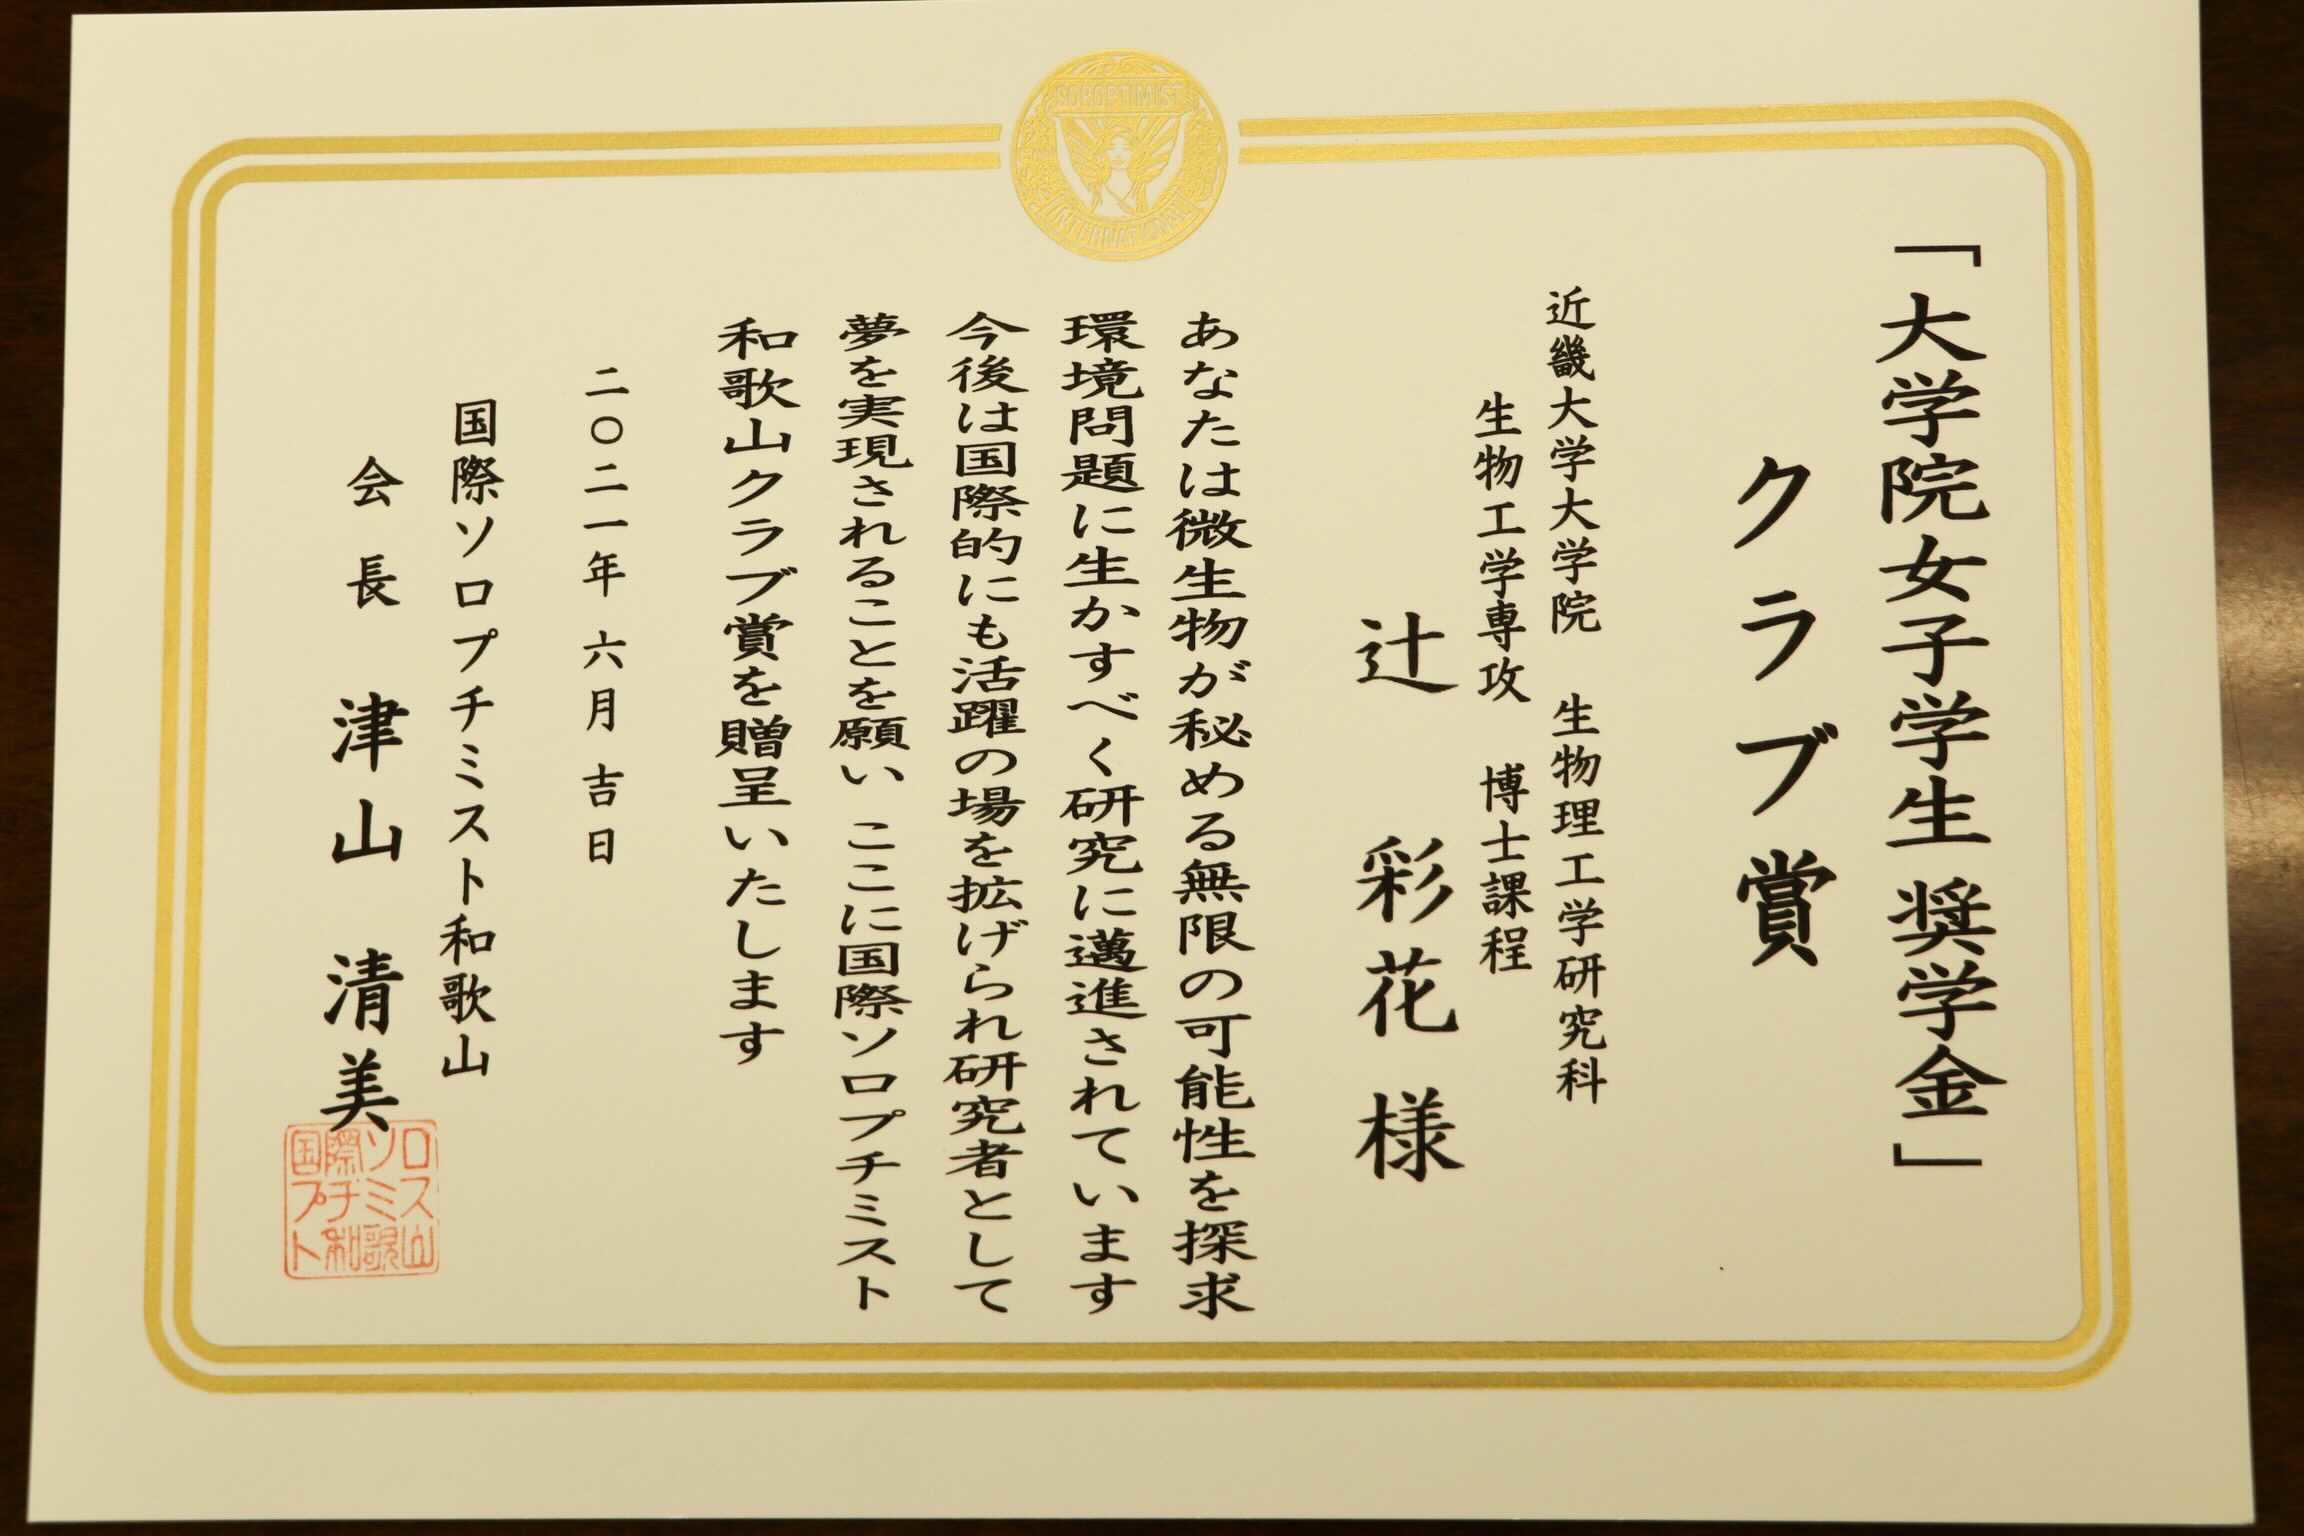 SOROPTIMIST
INTERNATIONAL
「大学院女子学生 奨学金」
クラブ賞
近畿大学大学院 生物理工学研究科
生物工学専攻 博士課程
辻 彩花 様
あなたは微生物が秘める無限の可能性を探求
環境問題に生かすべく研究に邁進されています
今後は国際的にも活躍の場を拡げられ研究者として
夢を実現されることを願い ここに国際ソロプチミスト
和歌山クラブ賞を贈呈いたします
二〇二一年 六月 吉日
国際ソロプチミスト和歌山
会長 津山 清美
国際ソロ
プチミス
ト和歌山